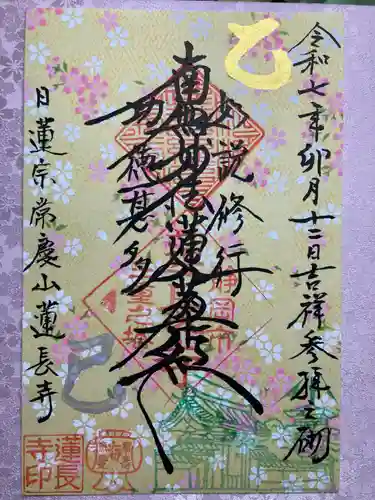 令和七年卯月十二日吉祥参拝之砌
乙
如説修行
南無妙法蓮華経
功徳甚多
静岡市
巳
日蓮宗常慶山蓮長寺
蓮長寺印